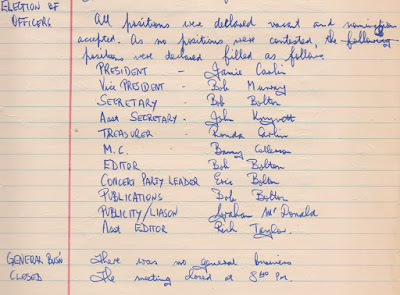 ELECTION OF All positions were declared vacant and nominations
OFFICERS accepted. As no positions were contested, the following
positions were declared filled as follows
PRESIDENT - Jamie Carlin
Vice PRESIDENT - Bob Murray
SECRETARY - Bob Bolton
Asst SECRETARY - John
TREASURER - Ronda Carlin
M.C. Barry
EDITOR Bob Bolton
CONCERT PARTY LEADER Eric Bolton
PUBLICATIONS Bob Bolton
PUBLICITY/LIASON Graham McDonald
Asst EDITOR Taylor.
GENERAL BUS'N There was no general business
CLOSED The meeting closed at pm.